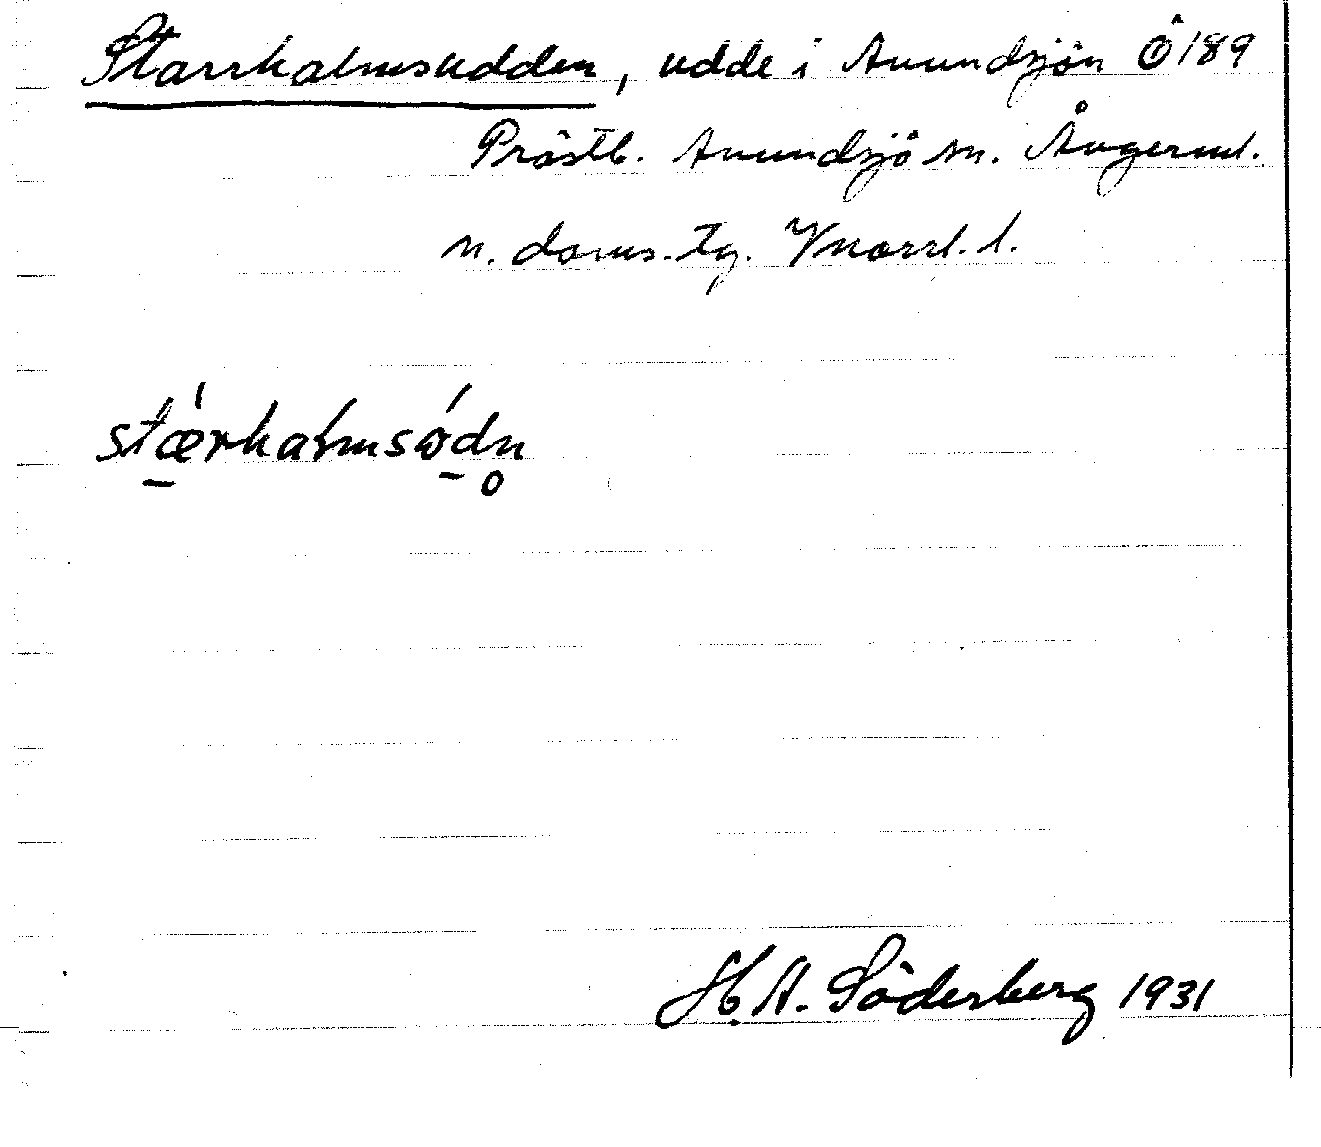 Starrholmsudden, udde i Anundsjön Ö 189
Prästb. Anundsjö sn. Ångerml.
n. doms. tg. Vnorrl. l.
stǽrholmsǿdn̥
H. A. Söderberg 1931